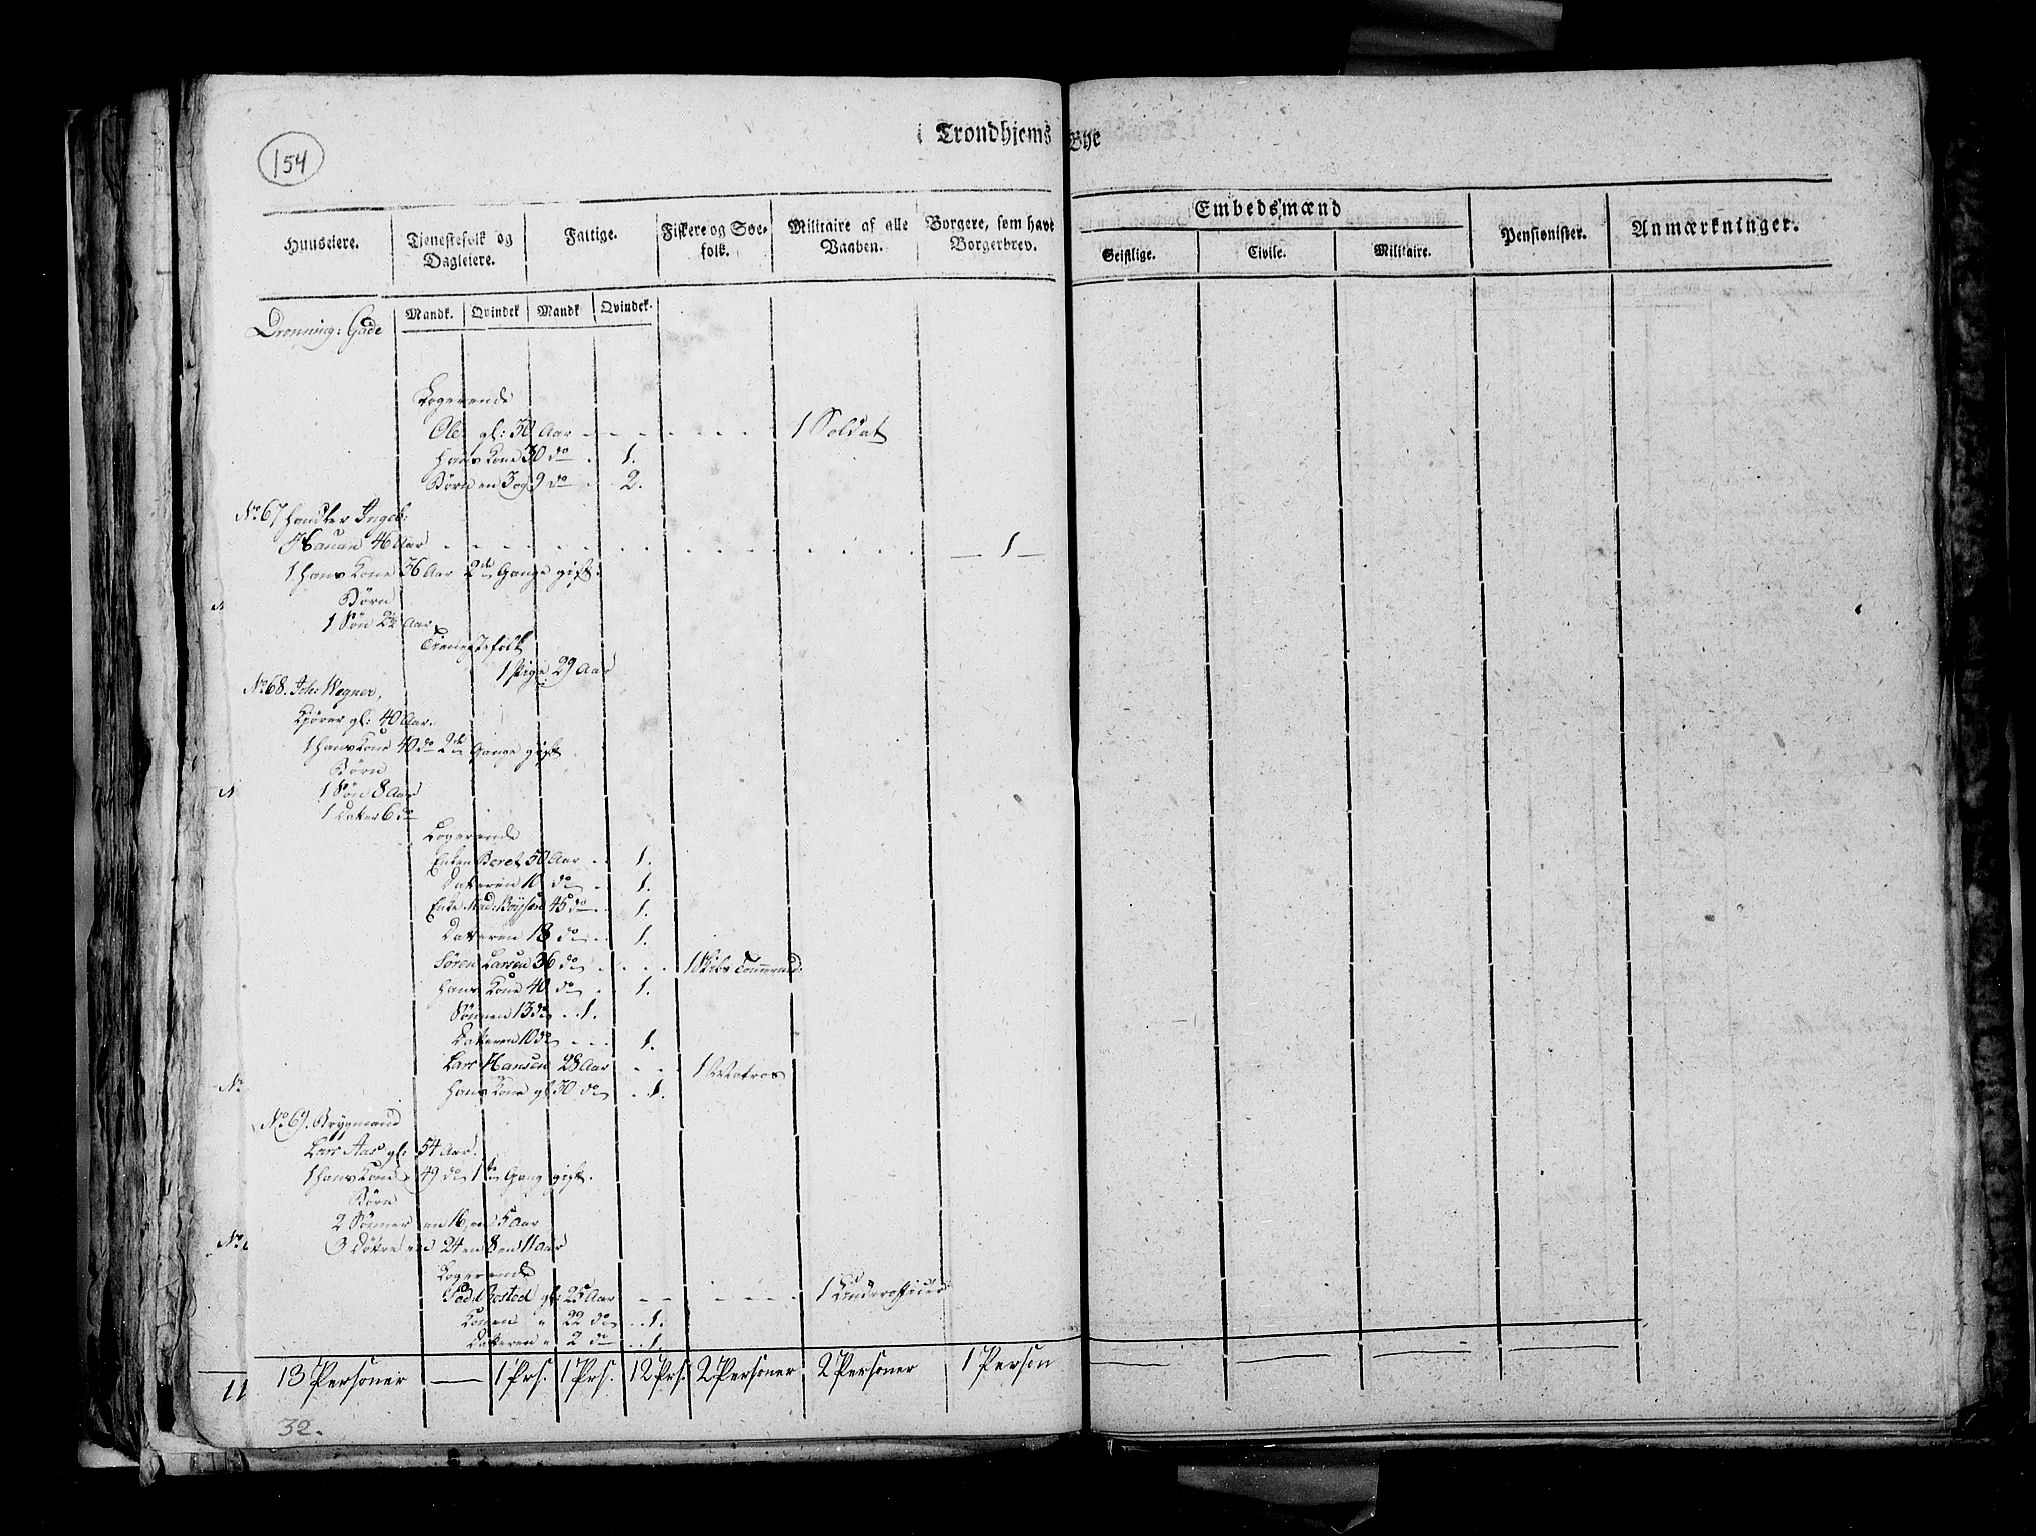 154
i Trondhjems Bye
Huuseiere. Tjenestefolk og Dagleiere. Fattige. Fiskere og Søe-folk. Militaire af alle Vaaben. Borgere, som have Borgerbrev. Embedsmænd Pensionister. Anmærkninger.
Geistlige. Civile. Militaire.
Mandk. Qvindek Mandk Qvindek.
Dronning: Gade
Logerende
Ole gl: 30 Aar - - - - - - 1 Soldat
hans Kone 30 do . 1.
Børn en 3 og 9 do . 2.
No. 67 Handler Ingeb:
Hauan 46 Aar - - - - - - - - - - 1 -
1 hans Kone 36 Aar 2de Gange gift.
Børn
1 Søn 24 Aar
Tienestefolk
1 Pige 29 Aar
No. 68. Joh: Wegner,
Kjører gl: 40 Aar.
1 hans Kone 40 do 2de Gange gift
Børn
1 Søn 8 Aar
1 Dater 6 do
Logerende
Enken Beret 50 Aar . . 1.
Dateren 10 do . 1.
Enke Mad: Boysen 45 do . . 1.
Dateren 18 do . . 1.
Søren Larsen 36 do . . . . 1 Skibs Tømmermd.
hans Kone 40 do . 1.
Sønnen 13 do . . 1.
Dateren 10 do - - - 1.
Lars Hansen 28 Aar - - 1 Matros
hans Kone gl 30 do . . 1.
No. 69. Brygmand
Lars Aas gl: 54 Aar.
1 hans Kone 49 do 1te Gang gift.
Børn
2 Sønner en 16, en 5 Aar
3 Døtre en 24 en 8 en 11 Aar
Logerende
gl: 25 Aar - - - - - 1 Underofficier
Konen " 22 do . . 1.
Dateren " 2 do . . 1.
13 Personer — 1 Prs. 1 Prs. 12 Prs. 2 Personer 2 Personer 1 Person — — — —
32.
11